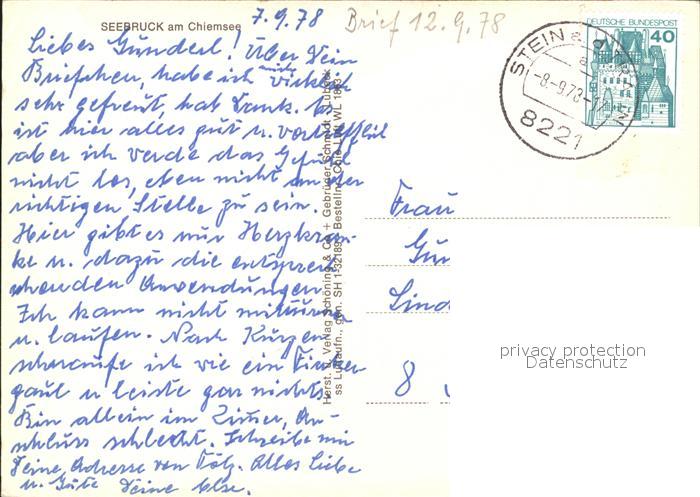 SEEBRUCK am Chiemsee
7.9.78
Brief 12.9.78
Liebes Gunderl! Über Dein
Briefchen, habe ich mich wirklich
sehr gefreut, hab Dank. Es
ist hier alles gut u. vortrefflich
aber ich werde das Gefühl
nicht los, eben nicht an der
richtigen Stelle zu sein.
Hier gibt es nur Herzkran-
ke u. dazu die entsprech
enden Anwendungen.
Ich kann nicht mitturnen
u. laufen. Nach Kurzem
schnaufe ich wie ein
gaul u leiste gar nichts.
Bin allein im Zimmer, An-
schluss schlecht. Schreibe mir
Deine Adresse von Tölz. Alles Liebe
u. Gute Deine Else.
Herst. u. Verlag Schöning & Co + Gebrüder Schmidt, Lübeck
ss Luftaufn., gen. SH 1-32189 Bestellnr.
DEUTSCHE BUNDESPOST
40
STEIN a. d.
-8.-9.78-
8221
Frau
Gun
Lind
8
privacy protection
Datenschutz